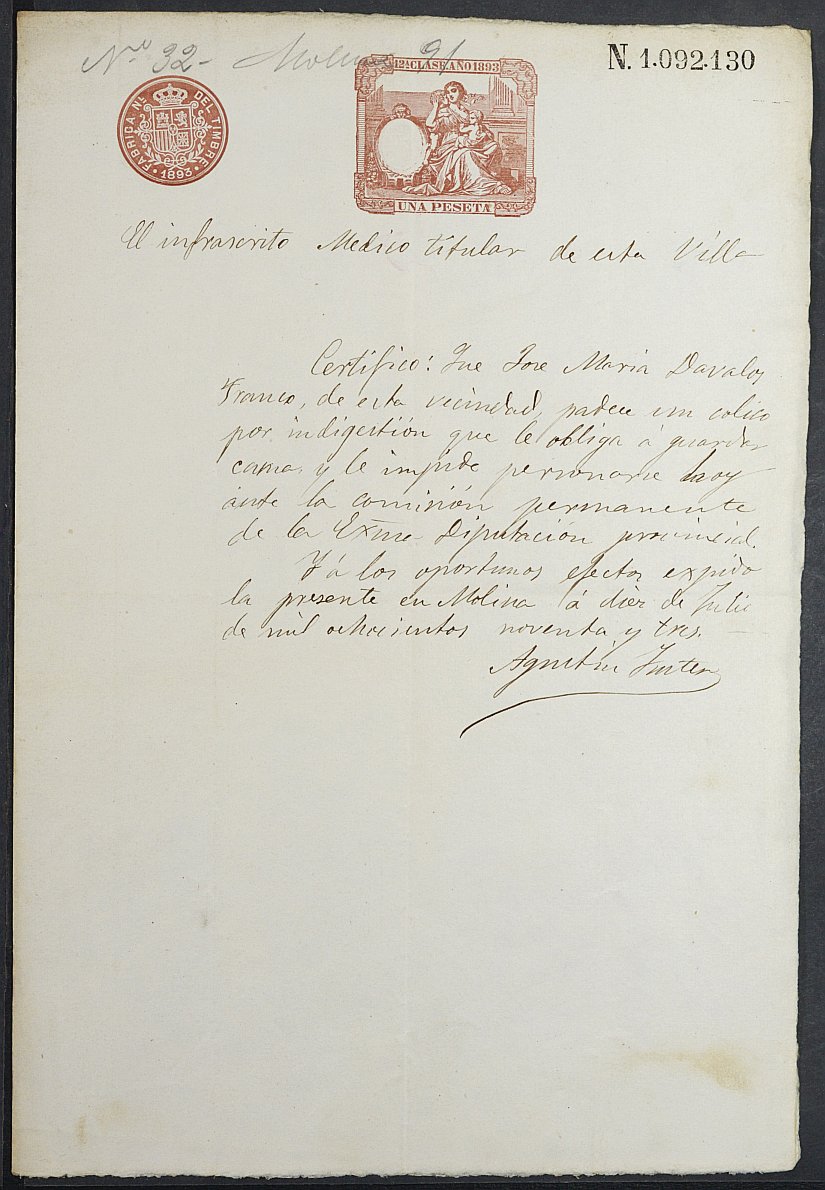 Nº 32- Molina 91
N. 1.092.130
12ª CLASE AÑO 1893
FABRICA Nᴸ DEL TIMBRE
1893
UNA PESETA
El infrascrito Medico titular de esta Villa
Certifico: Que Jose Maria Davalos
Franco, de esta vecindad, padece un colico
por indigestión que le obliga á guardar
cama, y le impide personarse hoy
ante la comisión permanente
de la Exma Diputación provincial.
Y á los oportunos efectos expido
la presente en Molina á diez de Julio
de mil ochocientos noventa y tres.
Agustin